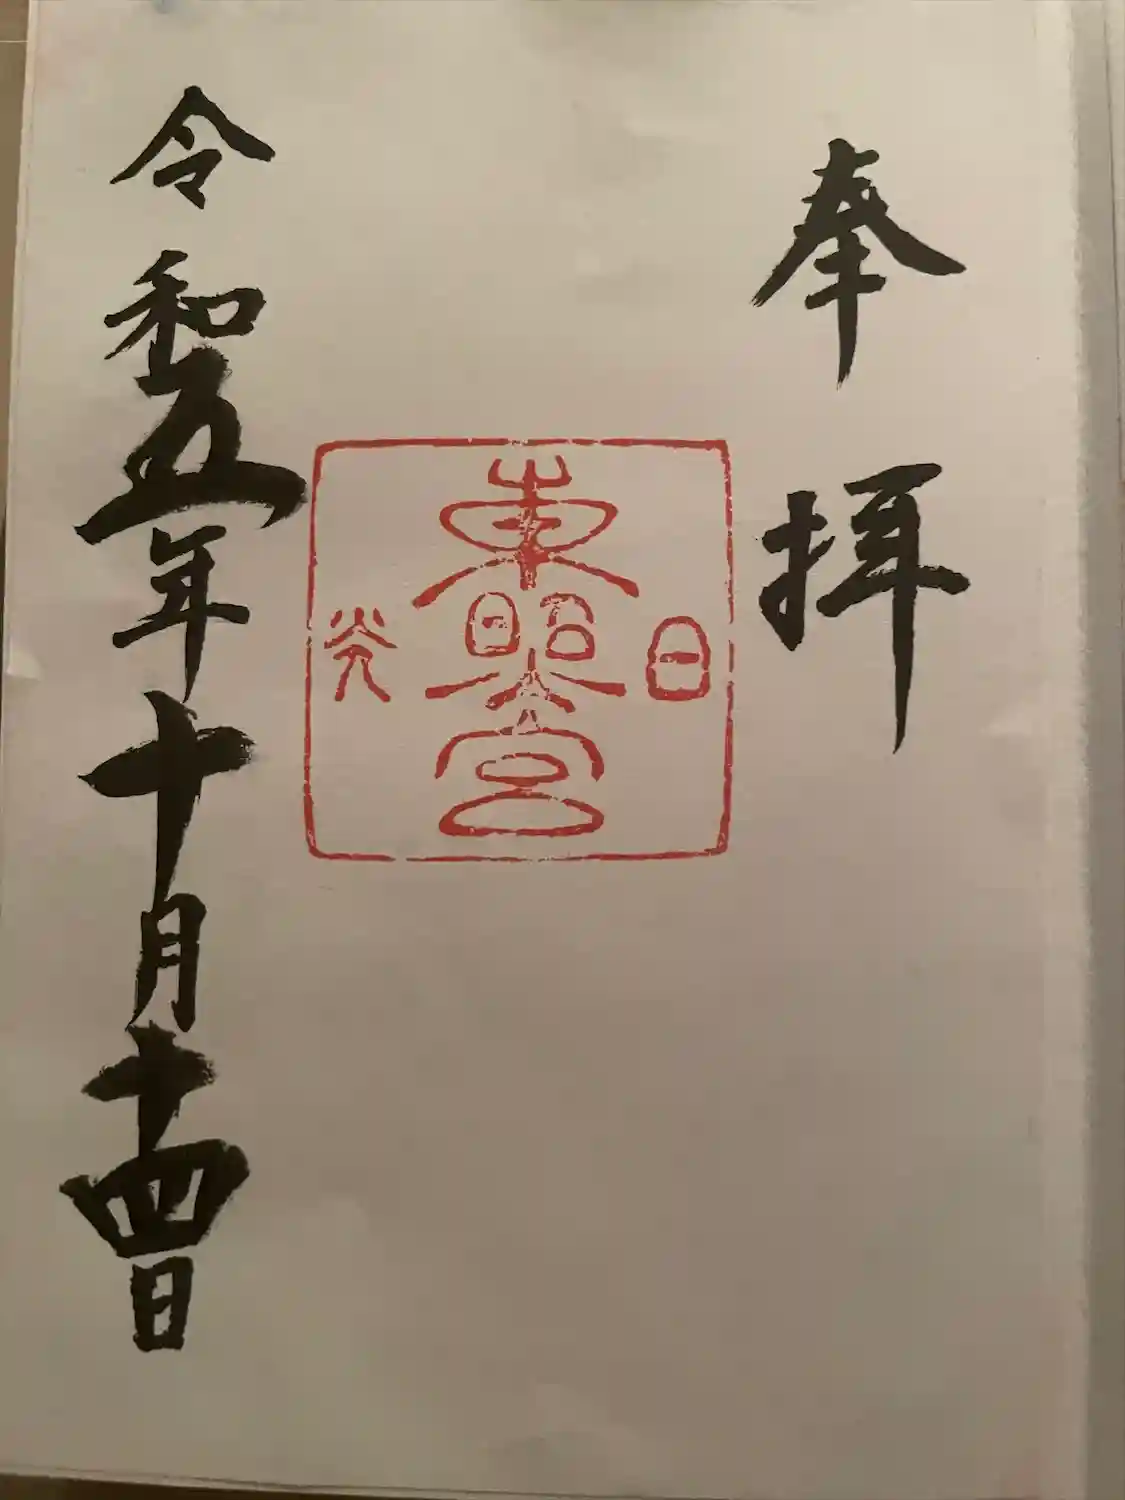 奉拝
日
東照宮
光
令和五年十月十四日